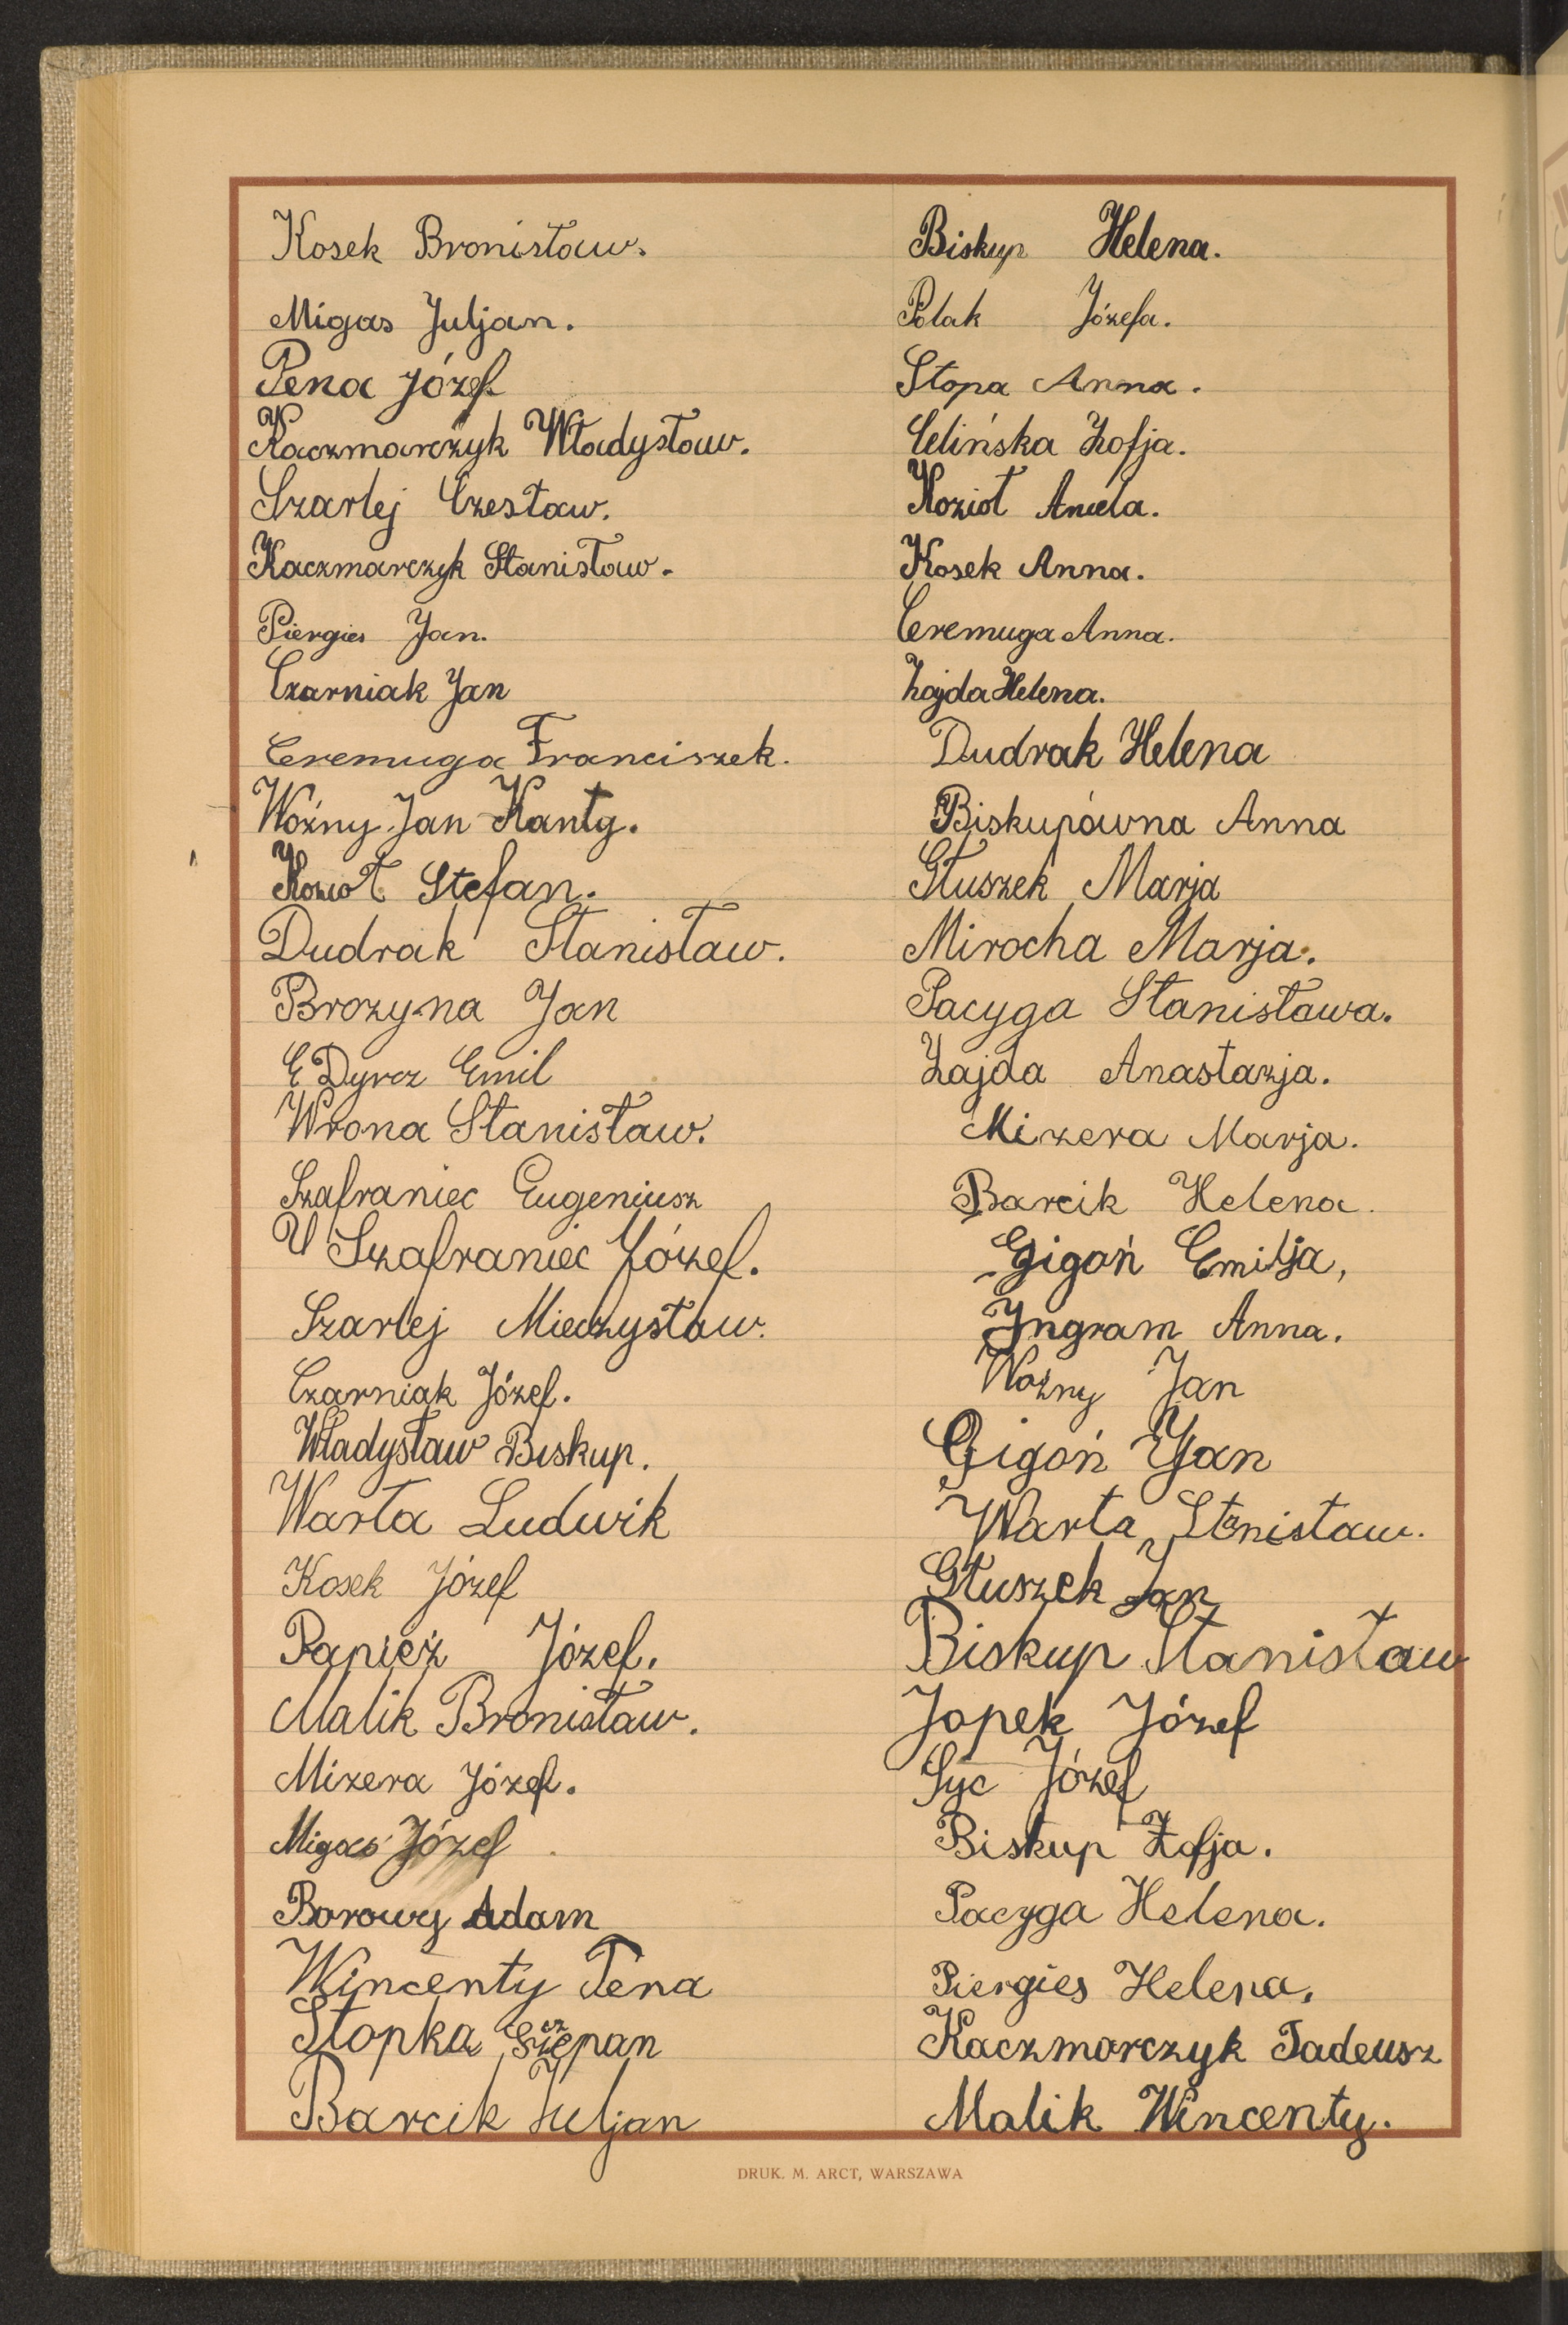 Kosek Bronisław.
Migas Juljan.
Pena Józef
Kaczmarczyk Władysław.
Szarlej Czesław.
Kaczmarczyk Stanisław.
Piergies Jan.
Czarniak Jan
Ceremuga Franciszek.
Woźny Jan Kanty.
Kozioł Stefan.
Dudrak Stanisław.
Brozyna Jan
E Dyrcz Emil
Wrona Stanisław.
Szafraniec Eugeniusz
Szafraniec Józef.
Szarlej Mieczysław.
Czarniak Józef.
Władysław Biskup.
Warta Ludwik
Kosek Józef
Papież Józef.
Malik Bronisław.
Mizera Józef.
Migas Józef
Borowy Adam
Wincenty Pena
Stopka Szczepan
Barcik Juljan
Biskup Helena.
Polak Józefa.
Stopa Anna.
Celińska Zofja.
Kozioł Aniela.
Kosek Anna.
Ceremuga Anna.
Zajda Helena.
Dudrak Helena
Biskupówna Anna
Głuszek Marja
Mirocha Marja.
Pacyga Stanisława.
Zajda Anastazja.
Mizera Marja.
Barcik Helena.
Gigoń Emilja,
Jngram Anna.
Woźny Jan
Gigoń Jan
Warta Stanisław.
Głuszek Jan
Biskup Stanisław
Jopek Józef
Syc Józef
Biskup Zofja.
Pacyga Helena.
Piergies Helena.
Kaczmarczyk Tadeusz
Malik Wincenty.
DRUK. M. ARCT, WARSZAWA